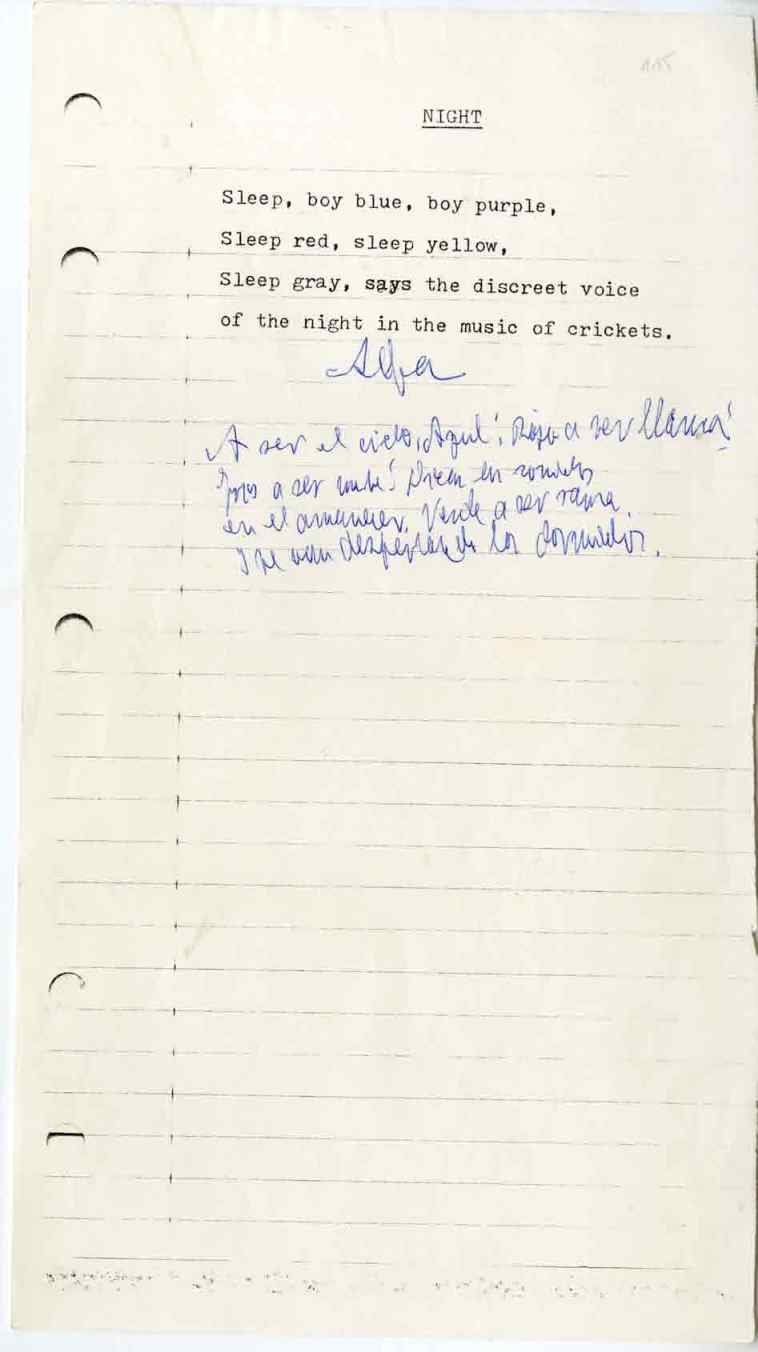 115
NIGHT
Sleep, boy blue, boy purple,
Sleep red, sleep yellow,
Sleep gray, says the discreet voice
of the night in the music of crickets.
A ser el cielo, Azul! Rojo a ser llama!
Gris a ser nube! Dicen en
en el amanecer. Verde a ser rama.
Y se van despertando los dormidos.